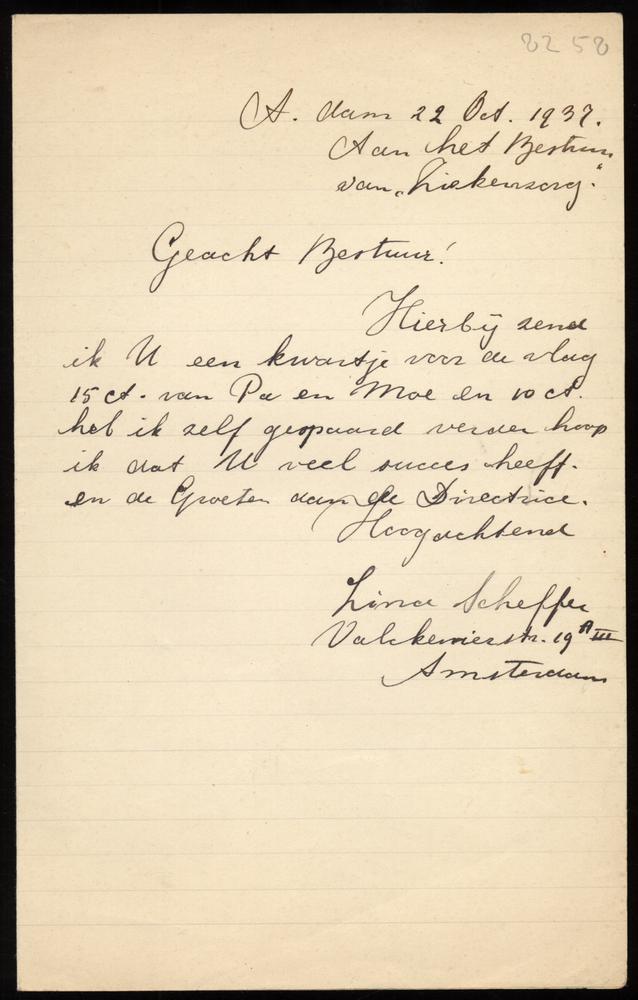 8258
A. dam 22 Oct. 1937.
Aan het Bestuur
van „Ziekenzorg."
Geacht Bestuur!
Hierbij zend
ik U een kwartje voor de vlag
15 ct. van Pa en Moe en 10 ct.
heb ik zelf gespaard verder hoop
ik dat U veel succes heeft.
en de Groeten aan de Directrice.
Hoogachtend
Lina Scheffer
Valckenierstr. 19 A III
Amsterdam